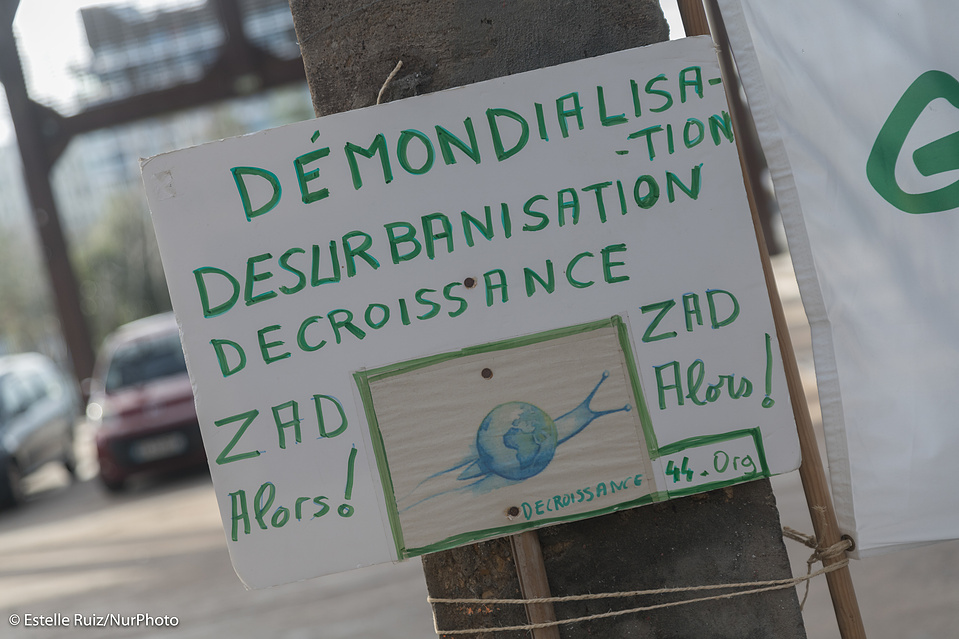 DÉMONDIALISA-
-TION
DESURBANISATION
DECROISSANCE
ZAD
Alors!
ZAD
Alors!
DECROISSANCE
44.Org
©Estelle Ruiz/NurPhoto